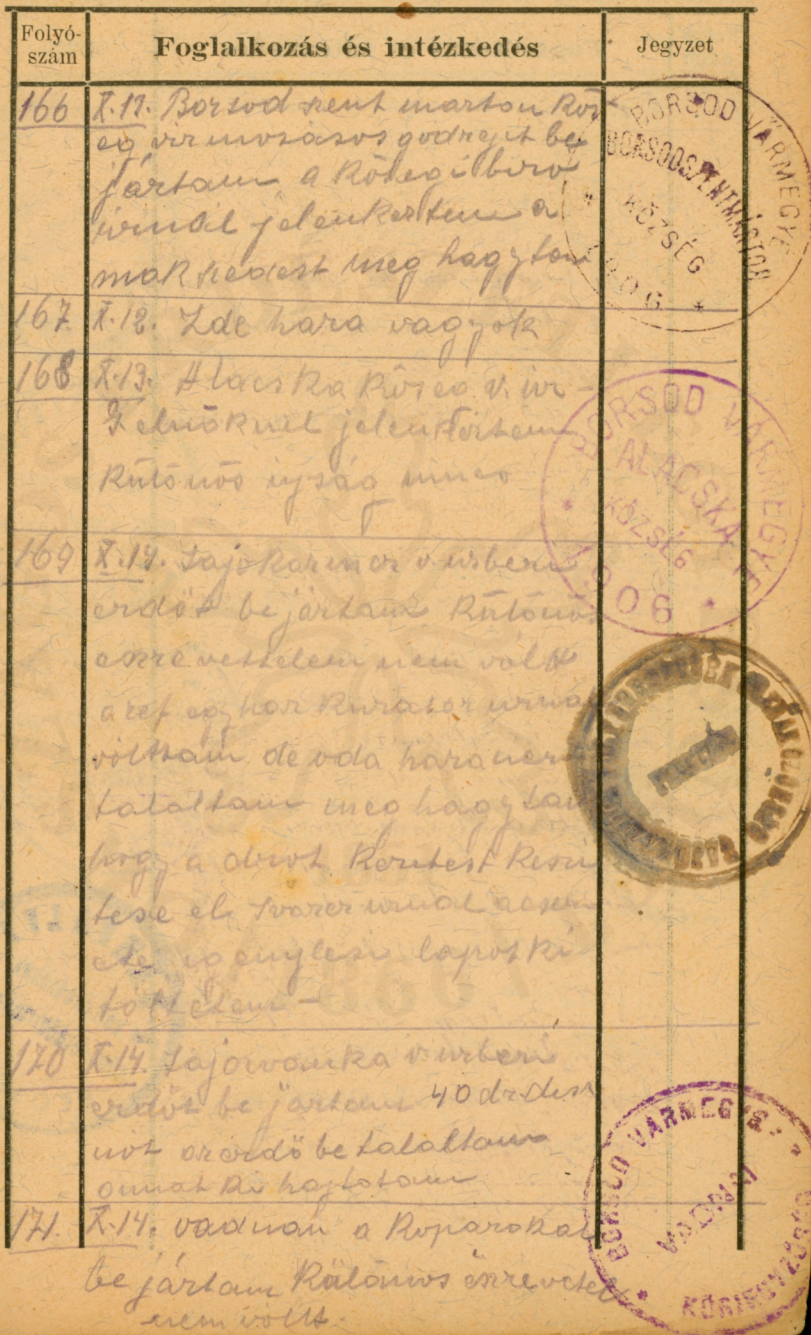 Folyó-
szám
Foglalkozás és intézkedés
Jegyzet
166 X.11. Borsod szent marton köz-
eg vizmosásos godreit be
jártam a közegi biro
urnál jelenkeztem a
meg hagytam
BORSOD VÁRMEGYE
BORSODSZENTMÁRTON
KÖZSÉG
1906
167 X.12. Ide haza vagyok
168 X.13. Alacska község v. ur-
elnöknél jelenkeztem
Külonös ujság nincs
BORSOD VÁRMEGYE
ALACSKA
KÖZSÉG
1906
169 X.14. Sajokazincz v. urberi
erdöt be jártam Külonös
eszrevettelem nem vólt
a ref egyhaz Kurator urnál
vólttam de oda haza nem
tatáltam meg hagytam
hogy a drot Keritest Keszi
tese el
igenylesi lapot ki
töltöttem -
170 X.14. Sajoivanka v. urberi
erdöt be jártam 40 dr. disz
nót az erdö be taláttam
onnat ki hajtotam
BORSOD VÁRMEGYE
VADNA
171. X.14. vadnán a Kopárokat
be jártam Külonos eszrevetel
nem vóllt.